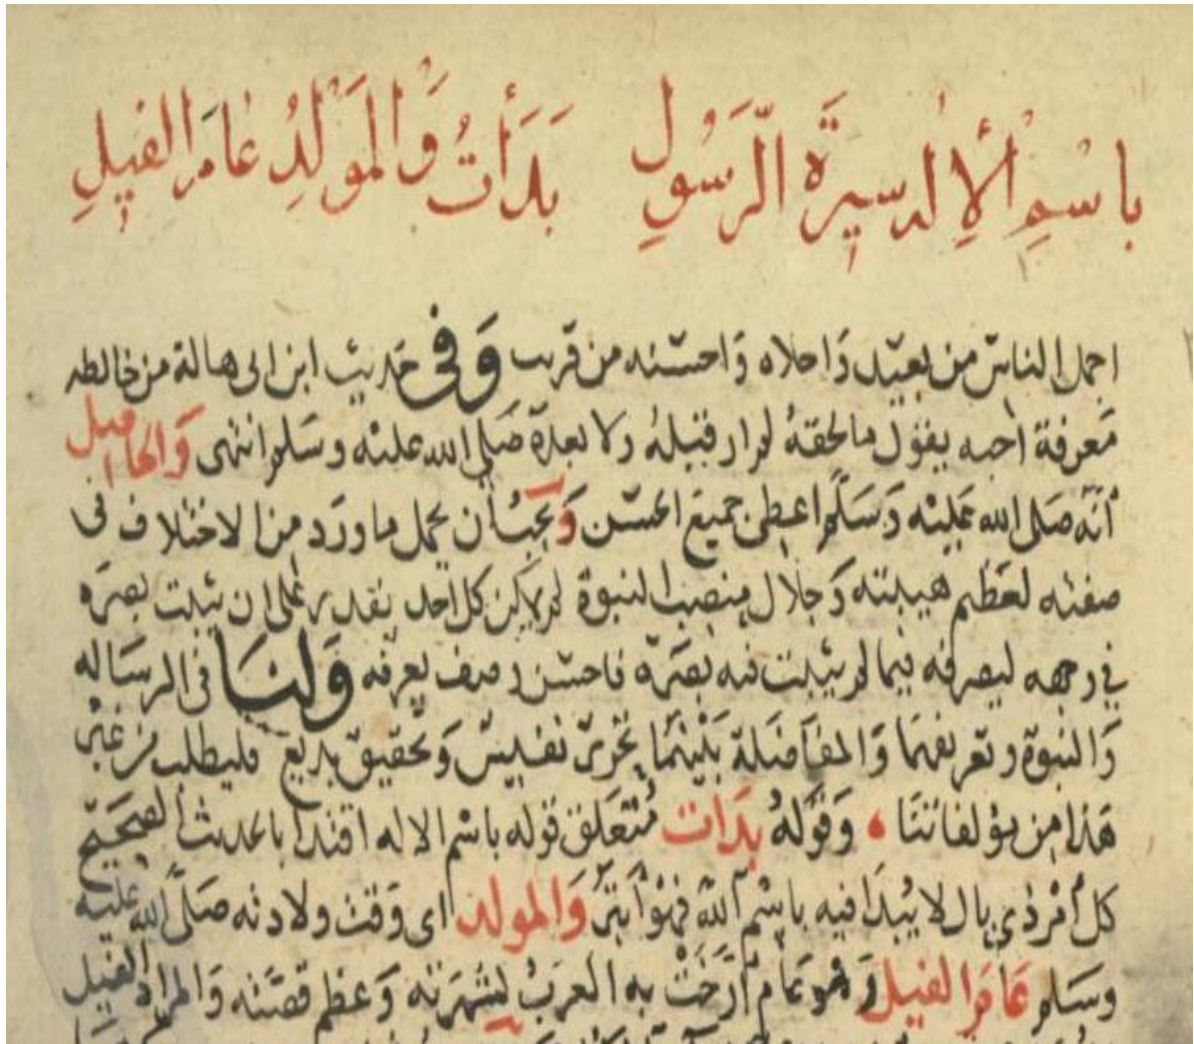 بِاسْمِ الْإِلٰهِ سِيرَةَ الرَّسُولِ بَدَأْتُ وَالْمَوْلِدُ عَامَ الْفِيلِ
اجمل الناس من بعيد واحلاه واحسنه من قريب وَفي حديث ابن ابى هالة من خالطه
معرفة احبه يقول ما لحقه لم ار قبله ولا بعده صلى الله عليه وسلم انتهى وَالحاصل
أنه صلى الله عليه وَسَلم اعطى جميع الحسن وَيجب أن يحمل ما ورد من الاختلاف فى
صفته لعظم هيبته وَجلال منصب النبوة لم يكن كل احد يقدر على ان يثبت بصره
في وجهه ليصرفه فيما لم يثبت فيه بصره فاحسن وصف يعرفه وَلنَا في الرسَاله
وَالنبوة وتعريفهمَا وَالمفاضلة بَيْنهمَا تحرير نفيس وَتحقيق بديع فليطلب من غير
هَذا من مؤلفاتنَا وَقَوله بدَات مُتعَلق قوله باسْم الاله اقتداْ بالحديث الصحيح
كل أمْر ذي بال لا يُبدَا فيه باسْم الله فهْوَ أبتَر وَالمولد اى وَقت ولادته صَلى الله عَليه
وسَلم عَامَ الفيل وَهْو عَام أرَّخَتْ به العَربُ لشهرَته وَعظم قصّته وَالمراد الفيل